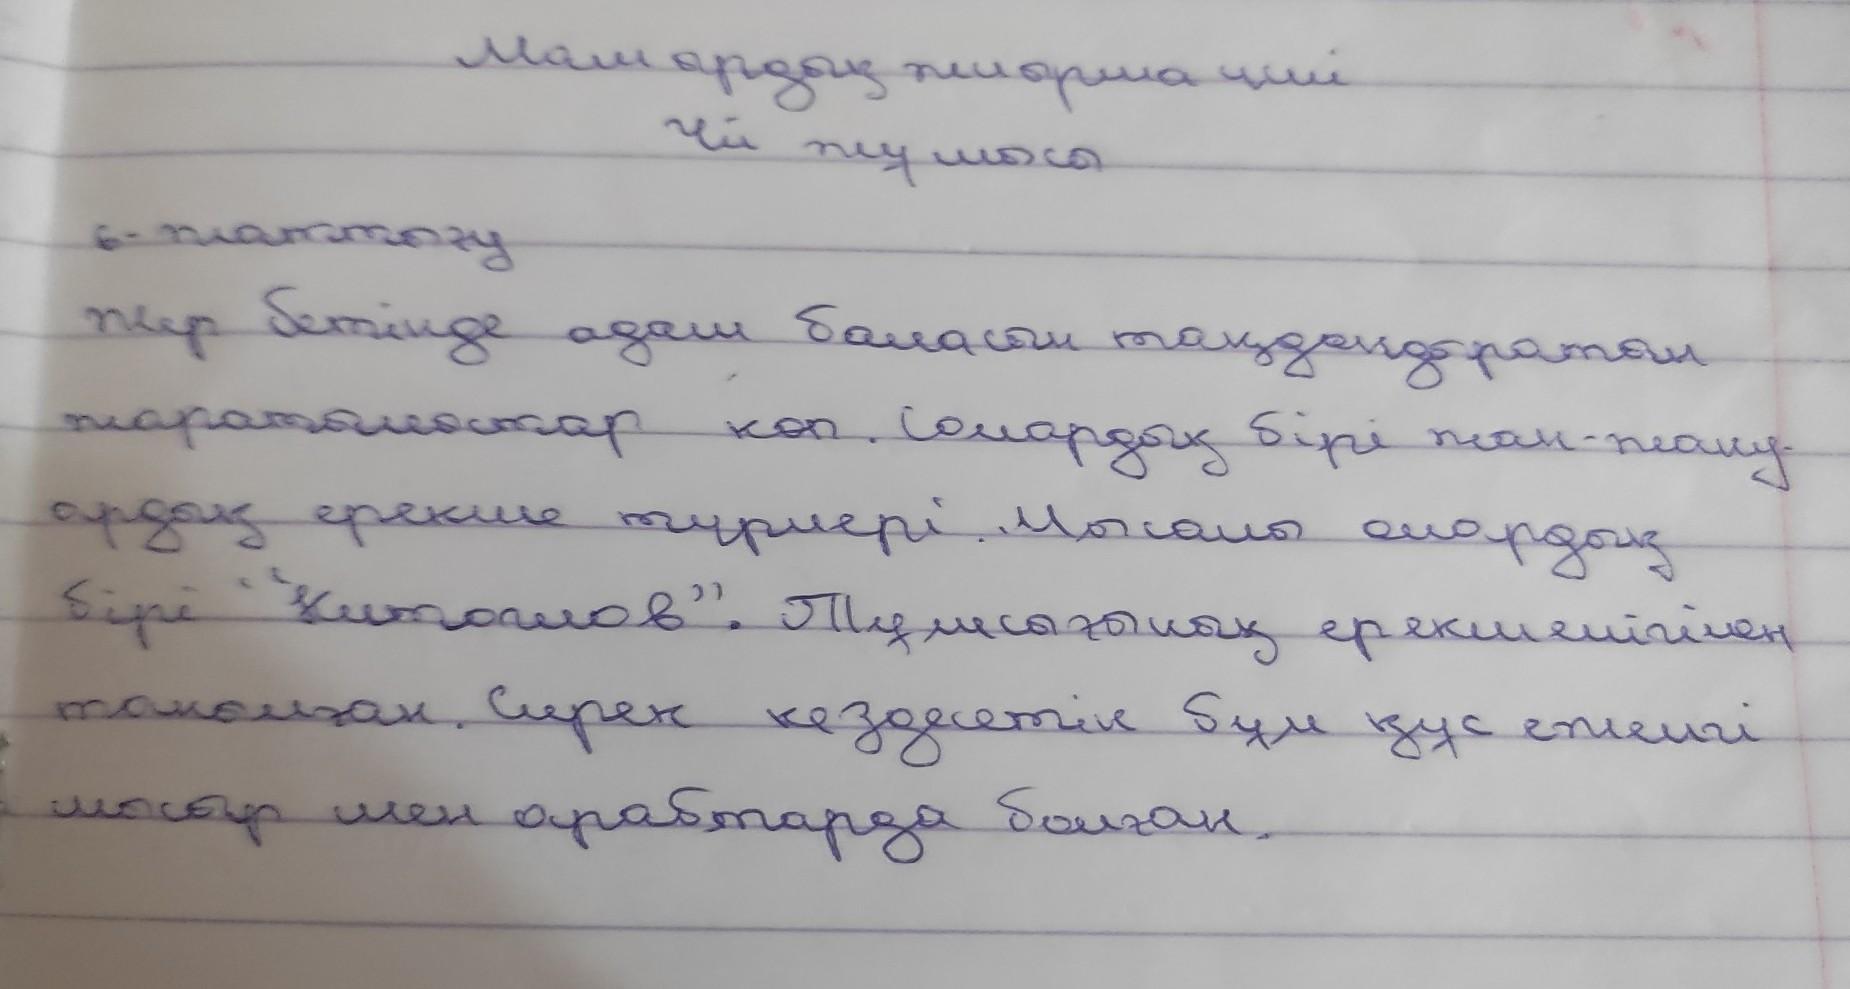 Мамырдың жиырма үші
Үй жұмысы
6-жаттығу
Жер бетінде адам баласын таңдандыратын
жаратылыстар көп. Солардың бірі жан-жану-
ардың ерекше түрлері. Мысалы олардың
бірі "Китоглов". Тұмсығының ерекшелігімен
танылған. Сирек кездесетін бұл құс ежелгі
мысыр мен арабтарда болған.